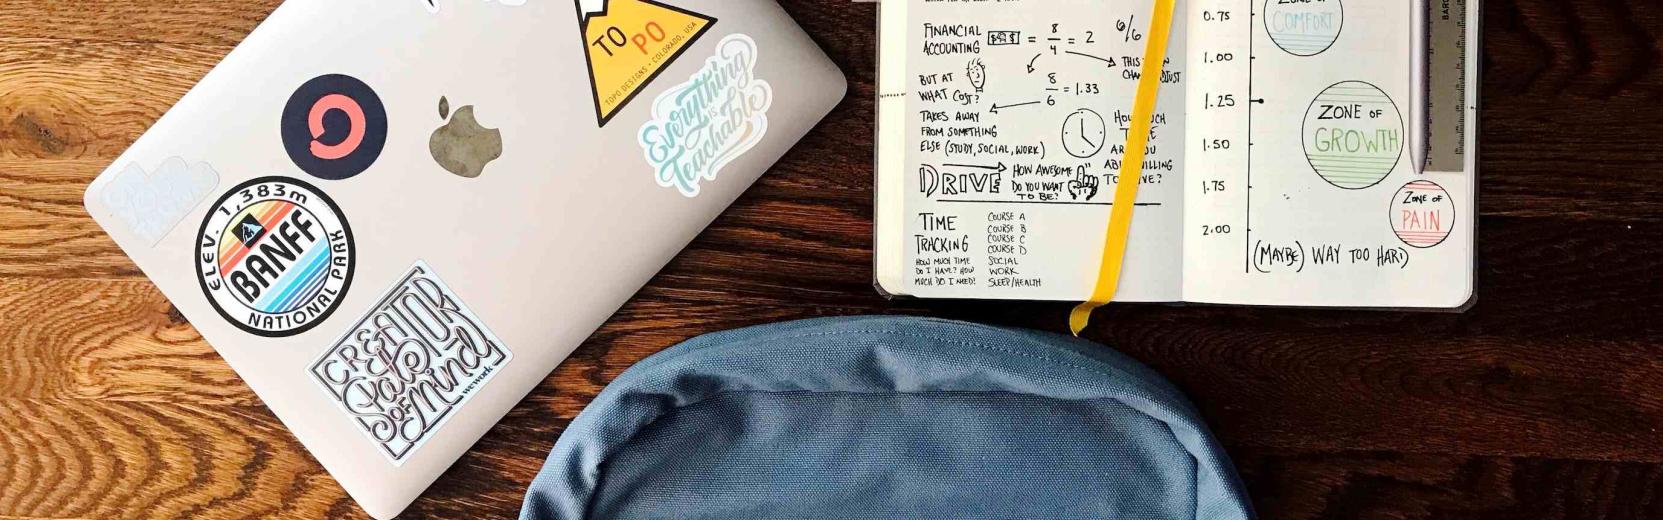 TO
PO
TOPO DESIGNS • COLORADO, USA
Everything
is
Teachable
ELEV. 1,383m
BANFF
NATIONAL PARK
CREATOR
State
OF
Mind
wework
FINANCIAL
ACCOUNTING
= 8/4 = 2
6/6
BUT AT
WHAT COST?
8/6 = 1.33
THIS
TAKES AWAY
FROM SOMETHING
ELSE (STUDY, SOCIAL, WORK)
DRIVE
HOW AWESOME
DO YOU WANT
TO BE?
TIME
TRACKING
HOW MUCH TIME
DO I HAVE? HOW
MUCH DO I NEED?
COURSE A
COURSE B
COURSE C
COURSE D
SOCIAL
WORK
SLEEP/HEALTH
0.75
1.00
1.25
1.50
1.75
2.00
ZONE OF
COMFORT
ZONE OF
GROWTH
ZONE OF
PAIN
(MAYBE) WAY TOO HARD